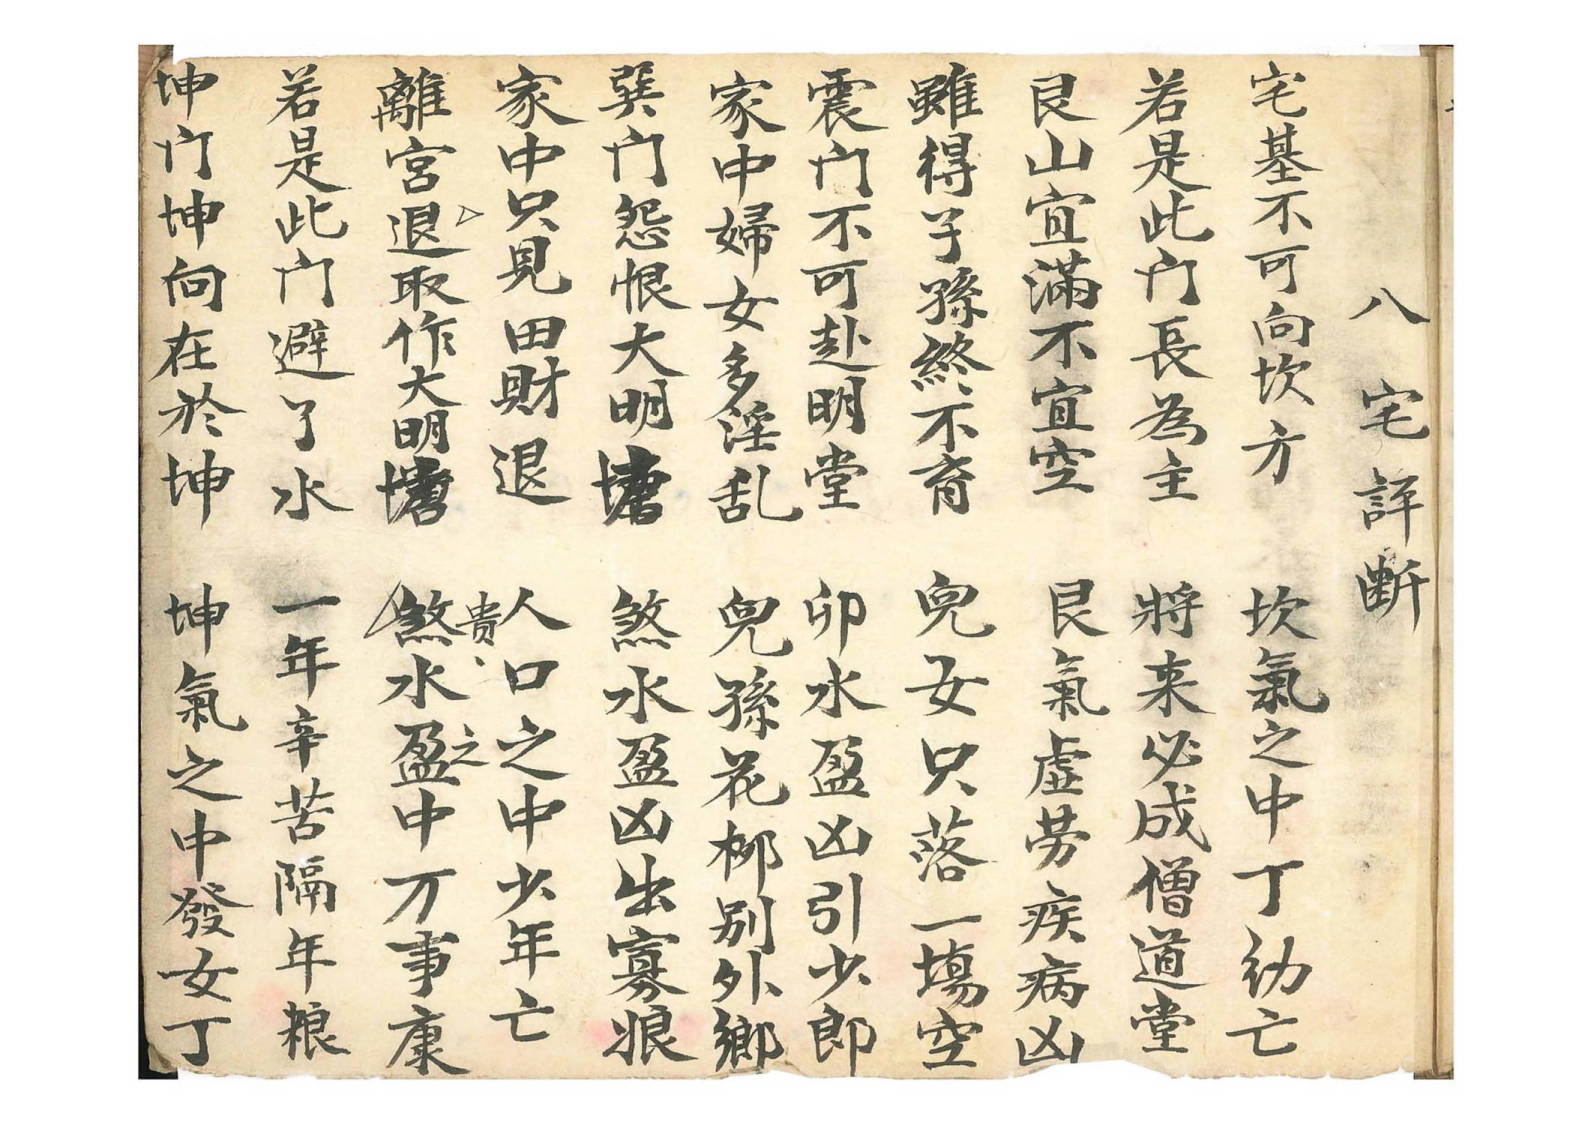 八宅詳断
宅基不可向坎方 坎氣之中丁幼亡
若是此门長為主 將来必成僧道堂
艮山宜滿不宜空 艮氣虛劳疾病凶
雖得子孫終不育 兒女只落一塲空
震门不可赴明堂 卯水盈凶引少郎
家中婦女多淫乱 兒孫花柳别外鄉
巽门怨恨大明塘 煞水盈凶出寡娘
家中只見田財退 人口之中少年亡
離宮退取作大明塘 煞水盈中万事康
貴之
若是此门避了水 一年辛苦隔年粮
坤门坤向在於坤 坤氣之中發女丁